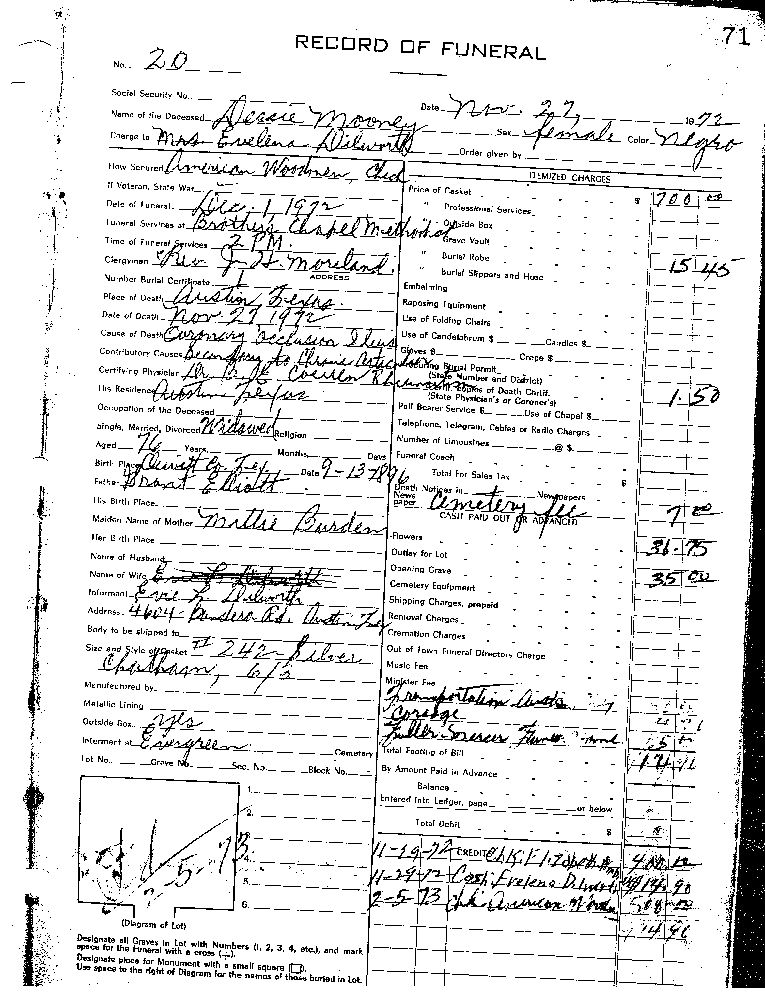 71
RECORD OF FUNERAL
No. 20
Social Security No.
Date Nov. 27, 1972
Name of the Deceased Dessie Mooney
Sex female Color Negro
Charge to Mrs. Evelena Dilworth
Order given by
How Secured American Woodmen, Chck
If Veteran, State War
Date of Funeral Dec. 1, 1972
Funeral Services at Brothers Chapel Methodist
Time of Funeral Services 2 P.M.
Clergyman Rev. J. H. Moreland
ADDRESS
Number Burial Certificate
Place of Death Austin, Texas.
Date of Death Nov 27 1972
Cause of Death Coronary occlusion
Contributory Causes Secondary to Chronic
Certifying Physician Dr. B. E.
His Residence Austin Texas
Occupation of the Deceased
Single, Married, Divorced Widowed Religion
Aged 76 Years, Months, Days
Birth Place Dewitt Co. Tex Date 9-13-1896
Father Grant Elliott
His Birth Place
Maiden Name of Mother Mittie Burden
Her Birth Place
Name of Husband
Name of Wife
Informant Evie L. Dilworth
Address 4604 - Bandera Rd. Austin Tex
Body to be shipped to
Size and Style of Casket # 242 - Silver
Chatham, 6/3
Manufactured by
Metallic Lining
Outside Box yes
Interment at Evergreen Cemetery
Lot No. Grave No. Sec. No. Block No.
1.
2.
4.
5.
6.
2-5-73
(Diagram of Lot)
Designate all Graves in Lot with Numbers (1, 2, 3, 4, etc.), and mark
space for the Funeral with a cross
Designate place for Monument with a small square
Use space to the right of Diagram for the names of those buried in Lot.
ITEMIZED CHARGES
Price of Casket $ 700 00
" Professional Services
" Outside Box
" Grave Vault
" Burial Robe 15 45
" Burial Slippers and Hose
Embalming
Reposing Equipment
Use of Folding Chairs
Use of Candelabrum $ Candles $
Gloves $ Crepe $
Procuring Burial Permit
(State Number and District)
Copies of Death Certif. 1.50
(State Physician's or Coroner's)
Pall Bearer Service $ Use of Chapel $
Telephone, Telegram, Cables or Radio Charges
Number of Limousines @ $
Funeral Coach
Total For Sales Tax $
Death Notices in Newspapers
News paper Cemetery fee 7 00
CASH PAID OUT OR ADVANCED
Flowers 36.75
Outlay for Lot
Opening Grave 35 00
Cemetery Equipment
Shipping Charges, prepaid
Removal Charges
Cremation Charges
Out of Town Funeral Directors Charge
Music Fee
Minister Fee
Transportation
Corsage
Total Footing of Bill
By Amount Paid in Advance
Balance
Entered into Ledger, page or below
Total Debit $
11-29-72 CREDIT Chk.
11-29-72 Cash Evelena Dilworth
2-5-73 Chk American Woodm 500 00
14 90